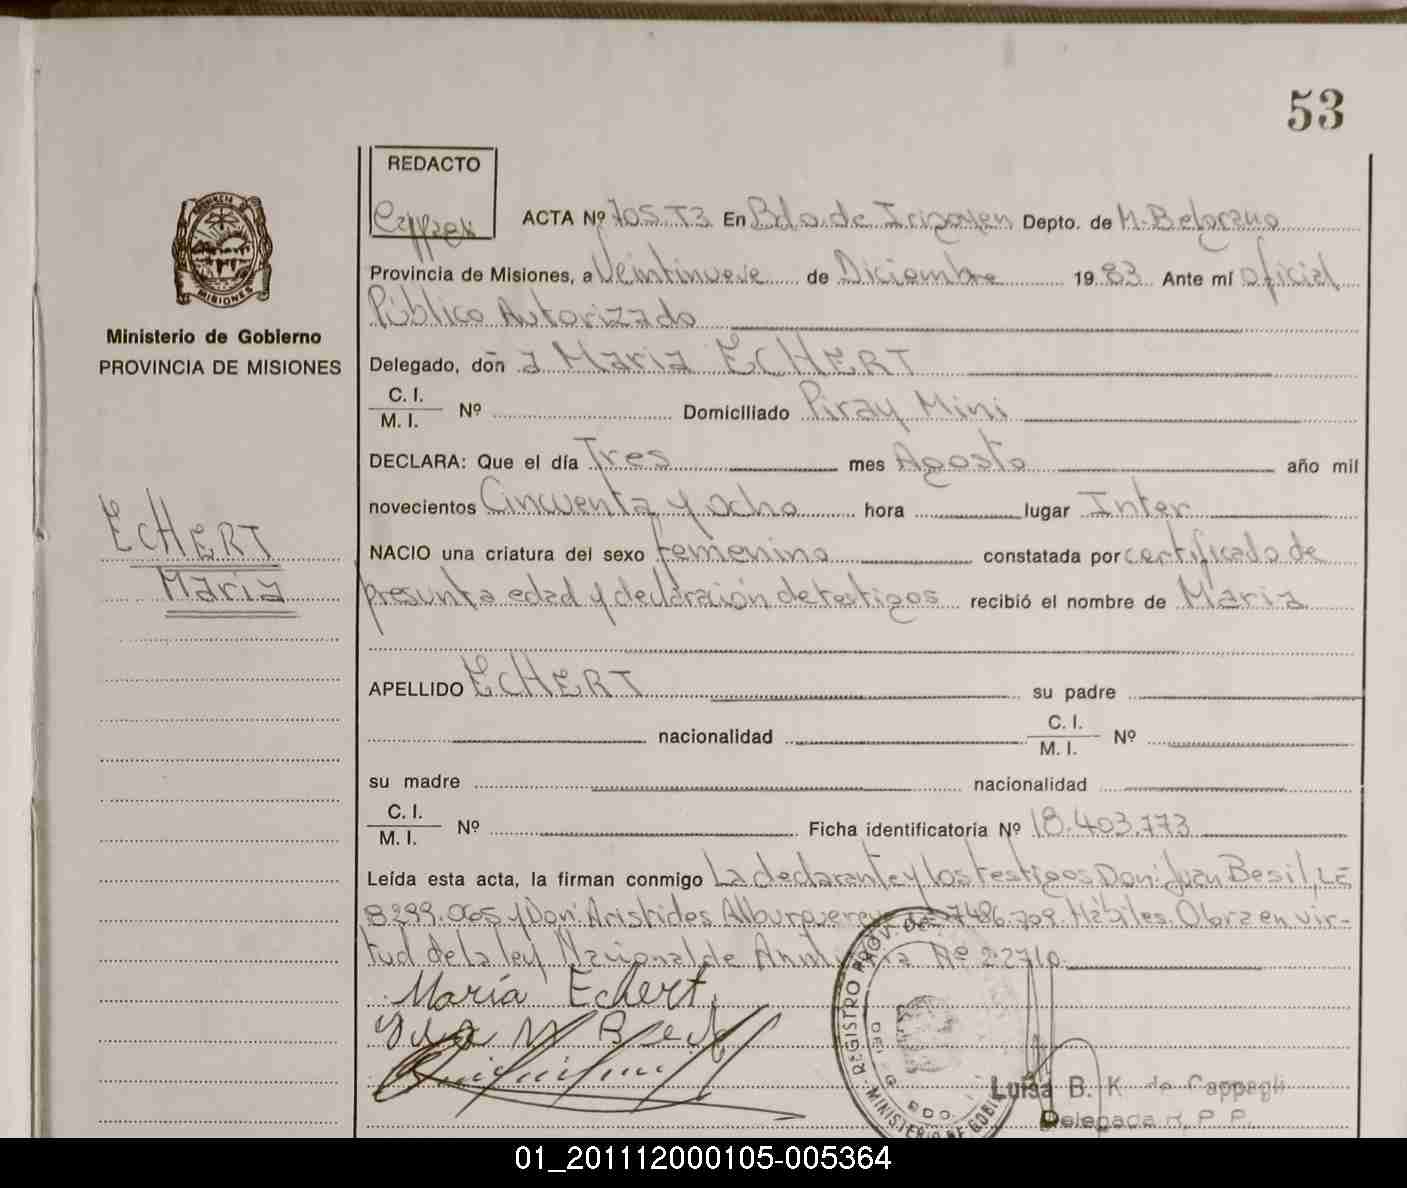 53
REDACTO
Cappagli
ACTA Nº 705.T3 En Bdo. de Irigoyen Depto. de M. Belgrano
Provincia de Misiones, a Veintinueve de Diciembre 1983 Ante mí oficial
Público Autorizado
Delegado, don a Maria ECHERT
C. I.
M. I. Nº Domiciliado Piray Mini
DECLARA: Que el día Tres mes Agosto año mil
novecientos Cincuenta y ocho hora lugar Inter
NACIO una criatura del sexo femenino constatada por certificado de
presunta edad y declaración de testigos recibió el nombre de Maria
APELLIDO ECHERT su padre
nacionalidad C. I.
M. I. Nº
su madre nacionalidad
C. I.
M. I. Nº Ficha identificatoria Nº 18.403.773
Leída esta acta, la firman conmigo La declarante y los testigos Don: Juan Besil, LE
8299.065 y Don: Aristides Alburquerque 7486.709. Hábiles. Obra en vir-
tud de la ley Nacional de Nº 22710
María Echert
PROVINCIA DE
MISIONES
Ministerio de Gobierno
PROVINCIA DE MISIONES
ECHERT
Maria
REGISTRO PROV. DE
MINISTERIO DE GOBI
Luisa B. K. de Cappagli
Delegada R. P. P.
01_201112000105-005364